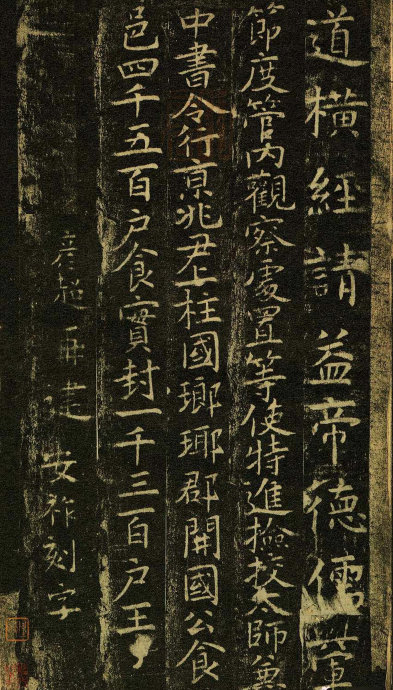 道橫經請益帝德儒
節度管內觀察處置等使特進檢校太師兼
中書令行亰兆尹上柱國瑯瑘郡開國公食
邑四千五百户食實封一千三百户王
彥超再建 安祚刻字